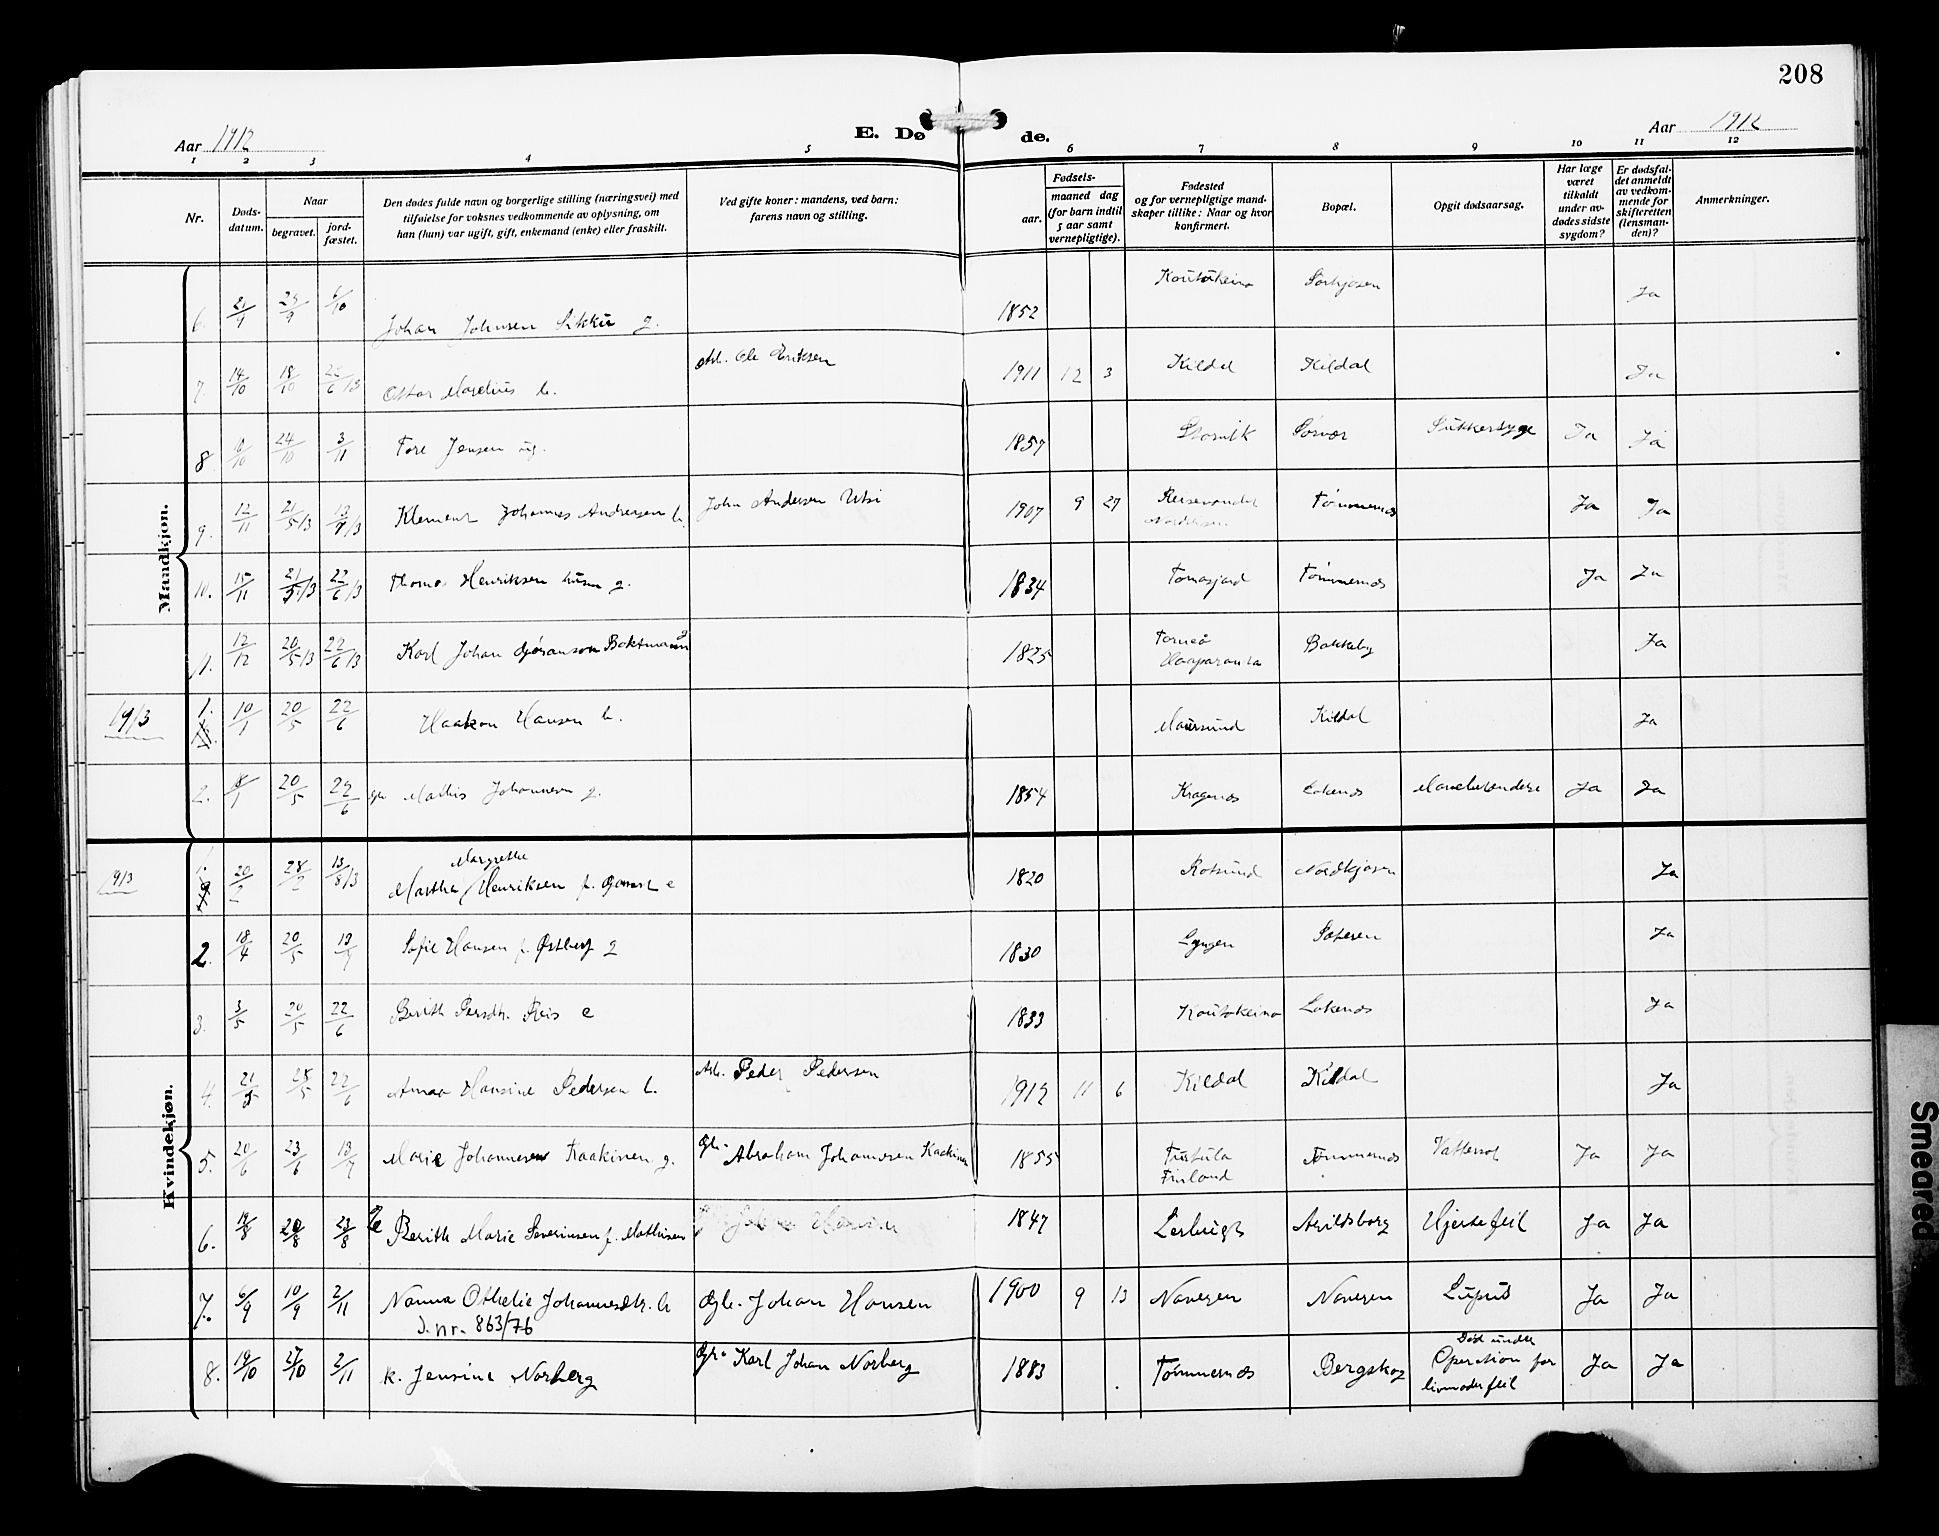 208
Aar 1912
E. Døde.
Aar 1912
1 2 3 4 5 6 7 8 9 10 11 12
Nr.
Døds-
datum.
Naar
begravet.
jord-
fæstet.
Den dødes fulde navn og borgerlige stilling (næringsvei) med
tilføielse for voksnes vedkommende av oplysning, om
han (hun) var ugift, gift, enkemand (enke) eller fraskilt.
Ved gifte koner: mandens, ved barn:
farens navn og stilling.
Fødsels-
aar.
maaned dag
(for barn indtil
5 aar samt
vernepligtige).
Fødested
og for vernepligtige mand-
skaper tillike: Naar og hvor
konfirmert.
Bopæl.
Opgit dødsaarsag.
Har læge
været
tilkaldt
under av-
dødes sidste
sygdom?
Er dødsfal-
det anmeldt
av vedkom-
mende for
skifteretten
(lensman-
den)?
Anmerkninger.
Mandkjøn.
6. 21/9 29/9 6/10 Johan Johnsen Sikku g. 1852 Koutokeino Sørkjosen Ja
7. 14/10 18/10 22/6 13 Ottar Nordius b. Arb. Ole Eriksen 1911 12 3 Kildal Kildal Ja
8 24/10 3/11 Tore Jensen ug. 1857 Storvik Sørvær Sukkersyge Ja Ja
9. 12/11 21/5 13 13/7 13 Klement Johannes Andreasen b. John Andersen Utsi 1907 9 27 Tømmernes Ja Ja
10. 15/11 21/5 13 22/6 13 Thomas Henriksen g. 1834 Tømmernes Ja Ja
11. 12/12 20/5 13 22/6 13 Karl Johan Gøranson Boktmann g 1825 Torneå Haaparanta Bakkeby Ja
1913 1. 10/1 20/5 22/6 Haakon Hansen b. Maursund Kildal Ja
2. 8/1 20/5 22/6 Mathis Johannesen g. 1854 Kragenes Ja Ja
Kvindekjøn.
1913 1. 20/2 28/2 13/8 13 Martha Margrethe Henriksen f. e 1820 Rotsund Nordkjosen Ja
2. 18/4 20/5 13/7 Sofie Hansen f. Østberg g 1830 Lyngen Ja
3. 3/5 20/5 22/6 Berith Persdtr. Reis e 1833 Koutokeino Ja
4. 21/5 25/5 22/6 Anna Hansine Pedersen b. Arb. Peder Pedersen 1912 11 6 Kildal Kildal Ja
5. 20/6 23/6 13/7 Marie Johannesen Kaakinen g. Abraham Johannesen Kaakinen 1855 Finland Tømmernes Vattersot Ja Ja
6. 14/8 20/8 23/8 Berith Marie Severinsen f. Mathisen 1847 Hjertefeil Ja Ja
7. 6/9 10/9 2/11 Nanna Othelie Johannesdtr. b Gbr. Johan Hansen 1900 9 13 Naveren Naveren Lupus Ja Ja
J.nr. 863/76
8. 19/10 27/10 2/11 k. Jensine Norberg Gbr. Karl Johan Norberg 1883 Tømmernes Bergskog Død under
Operation for
livmoderfeil Ja Ja
Smeared